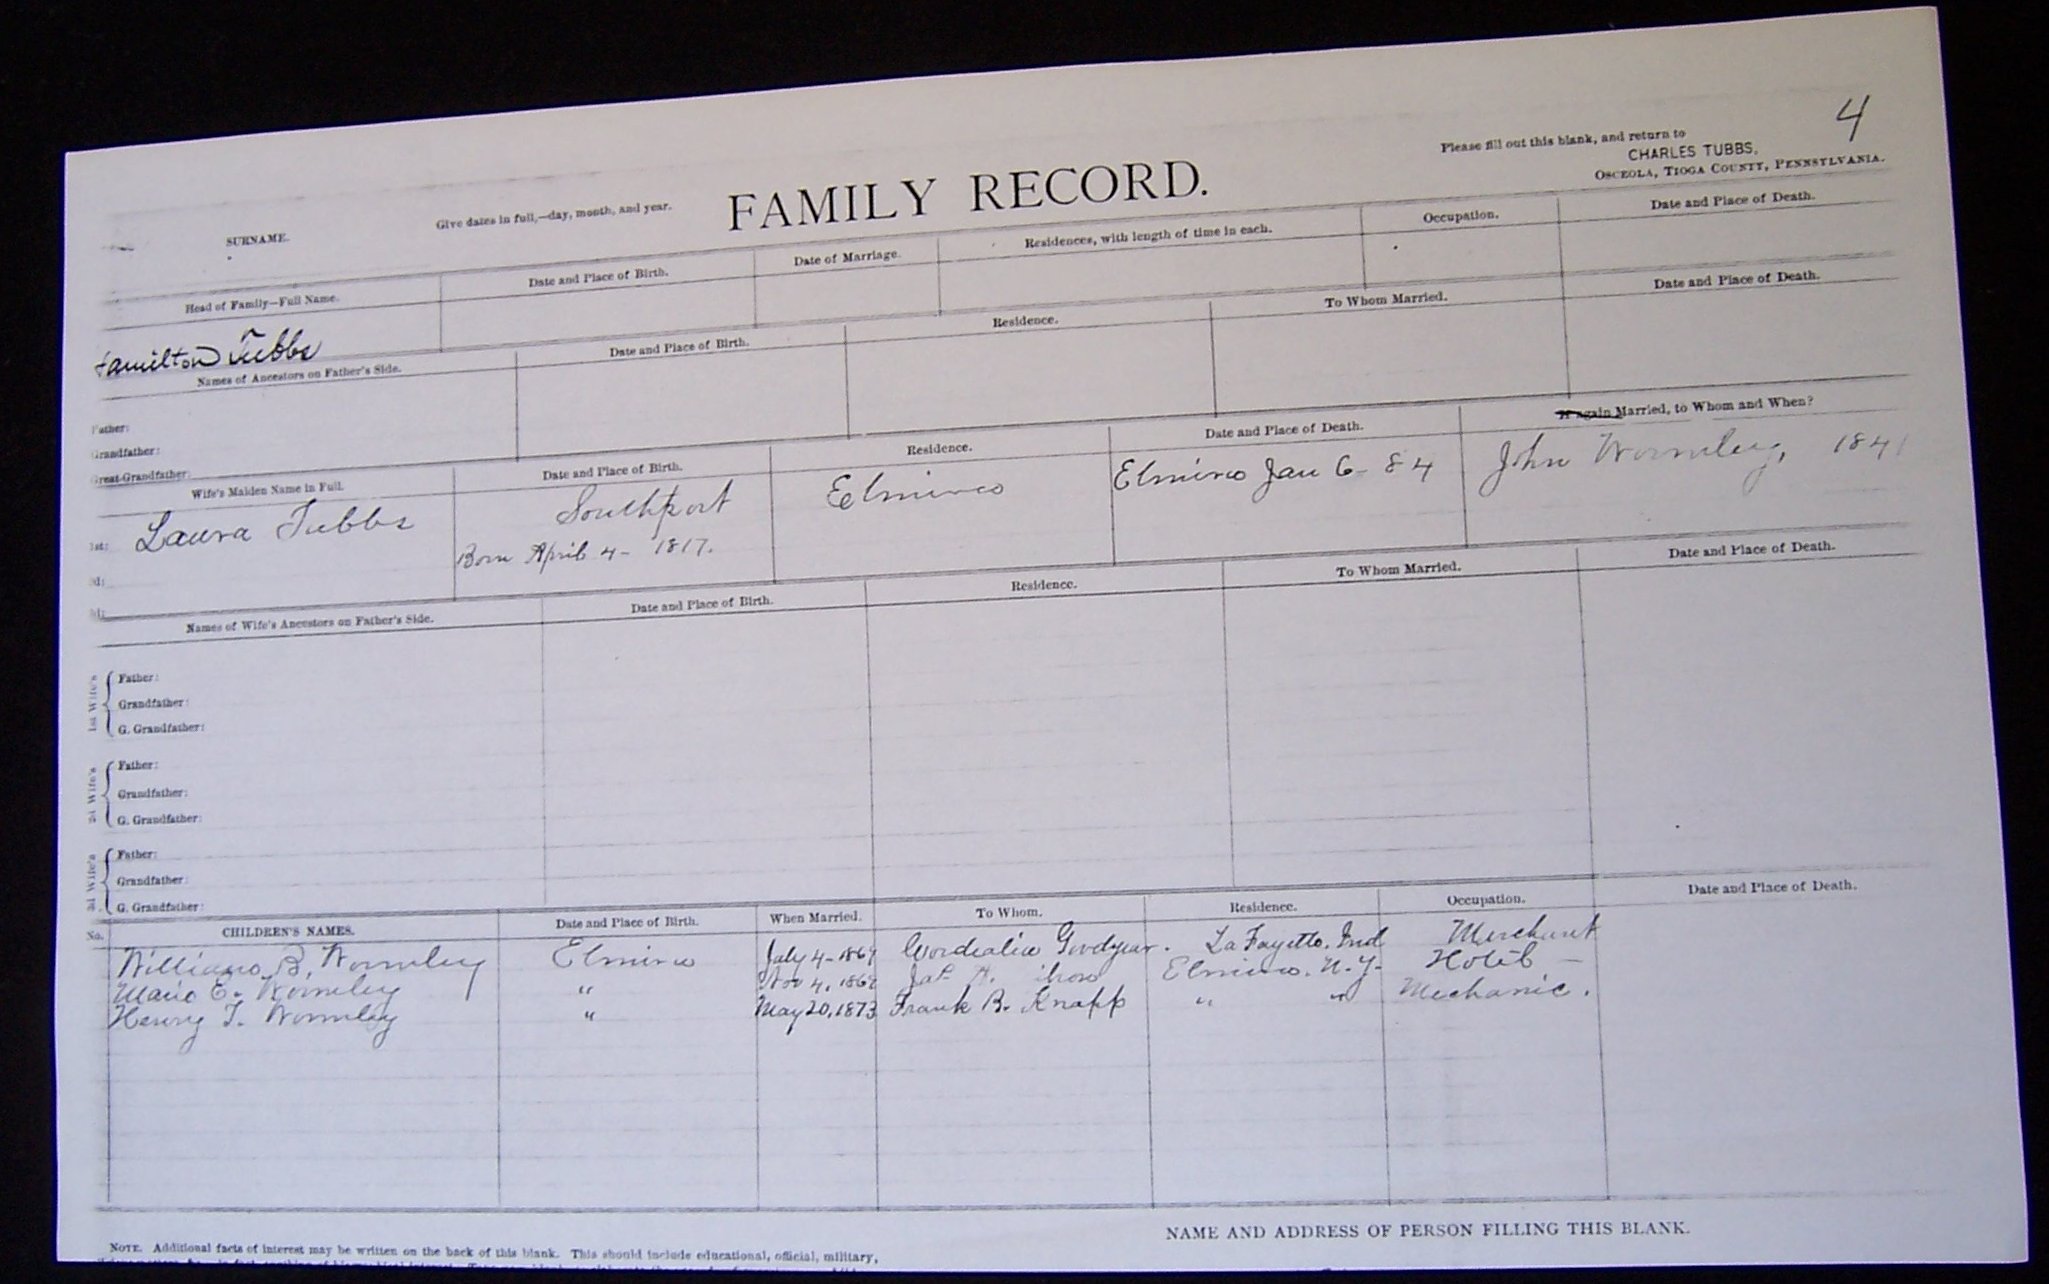 4
Please fill out this blank, and return to
CHARLES TUBBS,
OSCEOLA, TIOGA COUNTY, PENNSYLVANIA.
Give dates in full,—day, month, and year.
FAMILY RECORD.
SURNAME.
Head of Family—Full Name. Date and Place of Birth. Date of Marriage. Residences, with length of time in each. Occupation. Date and Place of Death.
Hamilton Tubbs
Names of Ancestors on Father's Side. Date and Place of Birth. Residence. To Whom Married. Date and Place of Death.
Father:
Grandfather:
Great-Grandfather:
Wife's Maiden Name in Full. Date and Place of Birth. Residence. Date and Place of Death. If again Married, to Whom and When?
1st: Laura Tubbs Southport Elmira Elmira Jan 6- 84 John Wormley, 1841
Born April 4- 1817.
2d:
3d:
Names of Wife's Ancestors on Father's Side. Date and Place of Birth. Residence. To Whom Married. Date and Place of Death.
1st Wife's
Father:
Grandfather:
G. Grandfather:
2d Wife's
Father:
Grandfather:
G. Grandfather:
3d Wife's
Father:
Grandfather:
G. Grandfather:
No. CHILDREN'S NAMES. Date and Place of Birth. When Married. To Whom. Residence. Occupation. Date and Place of Death.
William B. Wormley Elmira July 4- Goodyear. La Fayette, Ind Merchant
Marie E. Wormley " Nov 4, Elmira. N.Y- Hotel —
Henry T. Wormley " May 20, 1873 Frank B. Knapp " " Mechanic.
NAME AND ADDRESS OF PERSON FILLING THIS BLANK.
NOTE. Additional facts of interest may be written on the back of this blank. This should include educational, official, military,